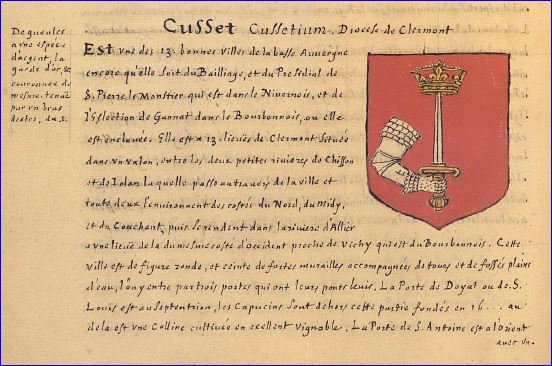 Cusset Cussetium. Diocese de Clermont
De gueules
a vne espée
d'argent, la
garde d'or, &
couronnée de
mesme, tenüe
par vn bras
dextre, du 2.
Est vne des 13 bonnes Villes de la basse Auvergne
encore qu'elle soit du Bailliage, et du Presidial de
S. Pierre le Monstier qui est dans le Nivernois, et de
l'Eslection de Gannat dans le Bourbonnois, ou elle
est enclavée. Elle est a 13 lieües de Clermont Située
dans vn valon, entre les deux petites rivieres de Chisson
et de Iolan laquelle passe au travers de la ville et
toute deux l'environnent des costés du Nord, du Midy,
et du Couchant, puis se rendent dans la riviere d'Allier
a vne lieüe de la du mesme costé d'occident proche de Vichy qui est du Bourbonnois. Cette
ville est de figure ronde, et ceinte de fortes murailles accompagnées de tours et de fossés plains
d'eau, l'on y entre par trois portes qui ont leurs ponts levis. La Porte de Doyat ou de S.
Louis est au Septentrion, les Capucins Sont dehors cette partie fondés en 16 ... au
dela est vne Colline cultivée en exellent Vignoble. La Porte de S. Antoine est a l'orient
avec vn.